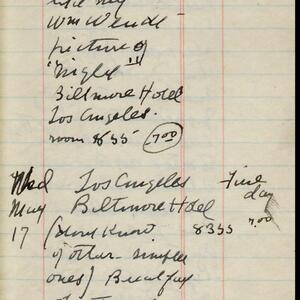 Wm Wendt
picture of
"Night"
Biltmore Hotel
Los Angeles.
room 8355 7.00
Wed Los Angeles Fine
May Biltmore Hotel day
17 (dont Know 8355 7.00
of other - simpler
ones) Beautiful